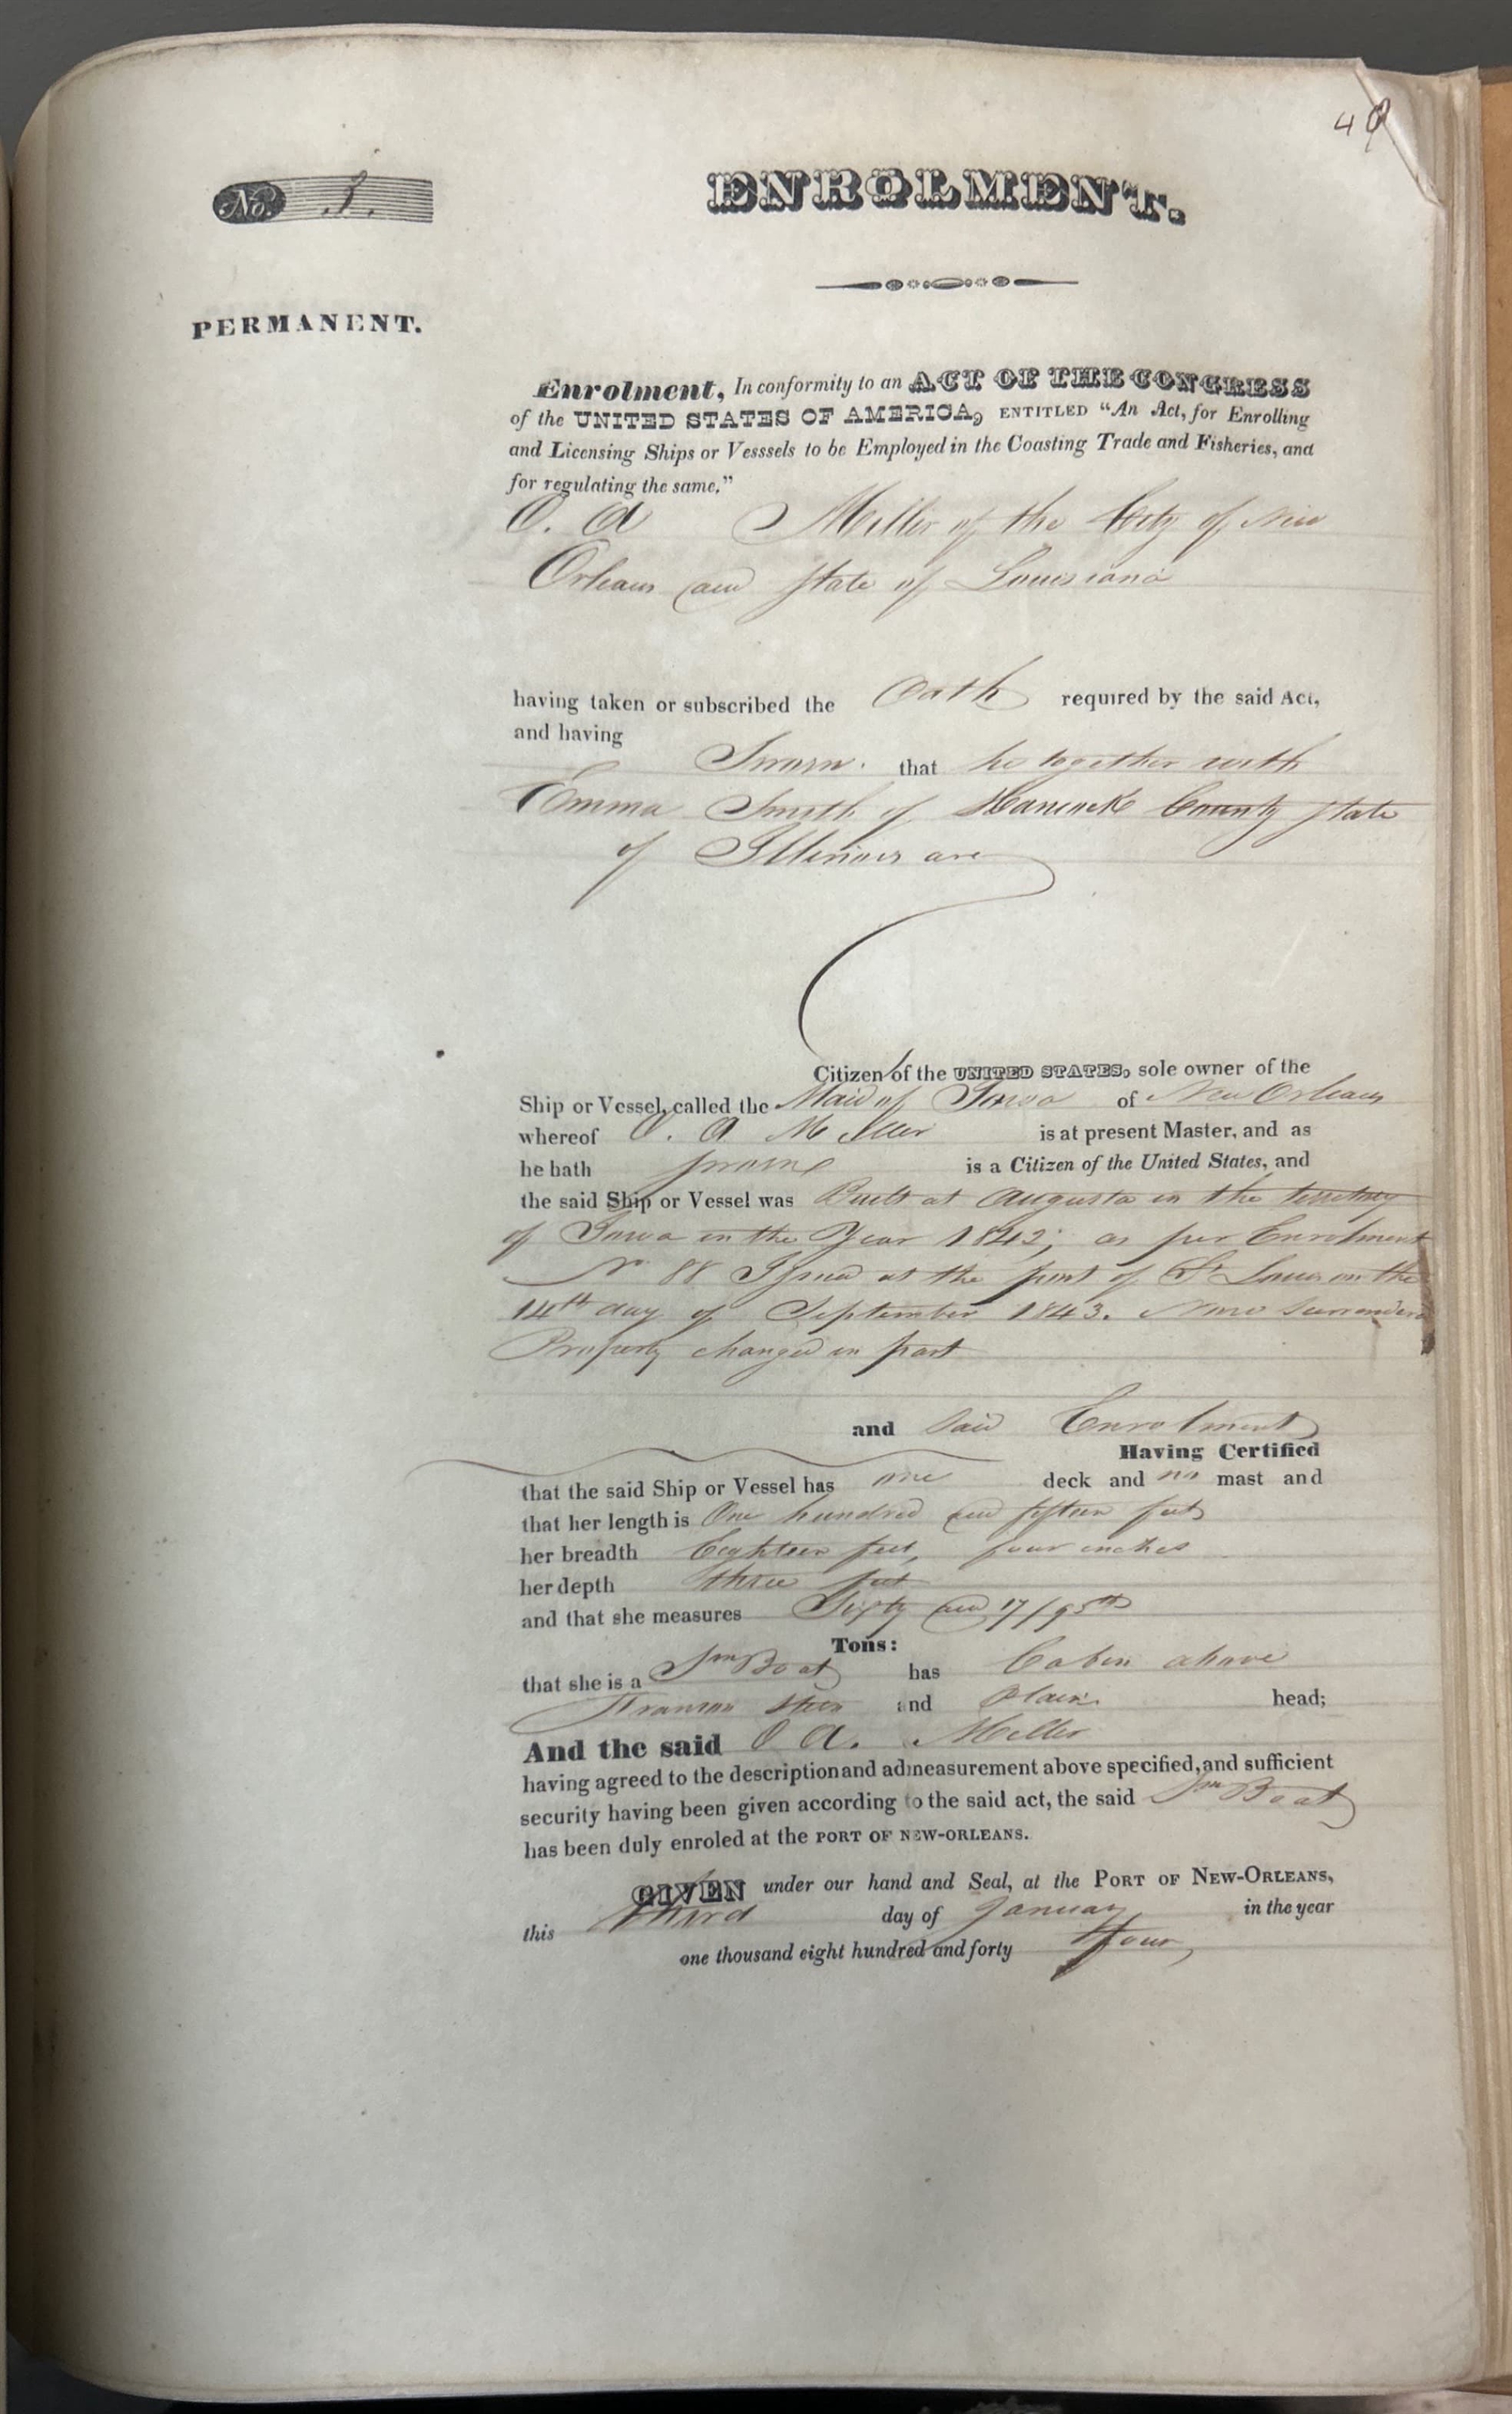 49
No. 3.
ENROLMENT.
PERMANENT.
Enrolment, In conformity to an ACT OF THE CONGRESS
of the UNITED STATES OF AMERICA, ENTITLED "An Act, for Enrolling
and Licensing Ships or Vesssels to be Employed in the Coasting Trade and Fisheries, and
for regulating the same."
O. A Miller of the City of New
Orleans and State of Louisiana
having taken or subscribed the Oath required by the said Act,
and having
Sworn. that he together with
Emma Smith of Hancock County State
of Illinois are
Citizens of the UNITED STATES, sole owner of the
Ship or Vessel, called the Maid of Iowa of New Orleans
whereof O. A Miller is at present Master, and as
he hath sworn is a Citizen of the United States, and
the said Ship or Vessel was Built at Augusta in the territory
of Iowa in the Year 1842; as per Enrolment
No 88 Issued at the port of St Louis on the
14th day of September 1843. Now Surrendered
Property changed in part
and Said Enrolment
Having Certified
that the said Ship or Vessel has one deck and no mast and
that her length is One hundred and fifteen feet
her breadth Eighteen feet, four inches
her depth three feet
and that she measures Sixty and 17/95ths
Tons:
that she is a Stm Boat has Cabin above
Transom Stern and Plain head;
And the said O A. Miller
having agreed to the description and admeasurement above specified, and sufficient
security having been given according to the said act, the said Stm Boat
has been duly enroled at the PORT OF NEW-ORLEANS.
GIVEN under our hand and Seal, at the PORT OF NEW-ORLEANS,
this third day of January in the year
one thousand eight hundred and forty four,